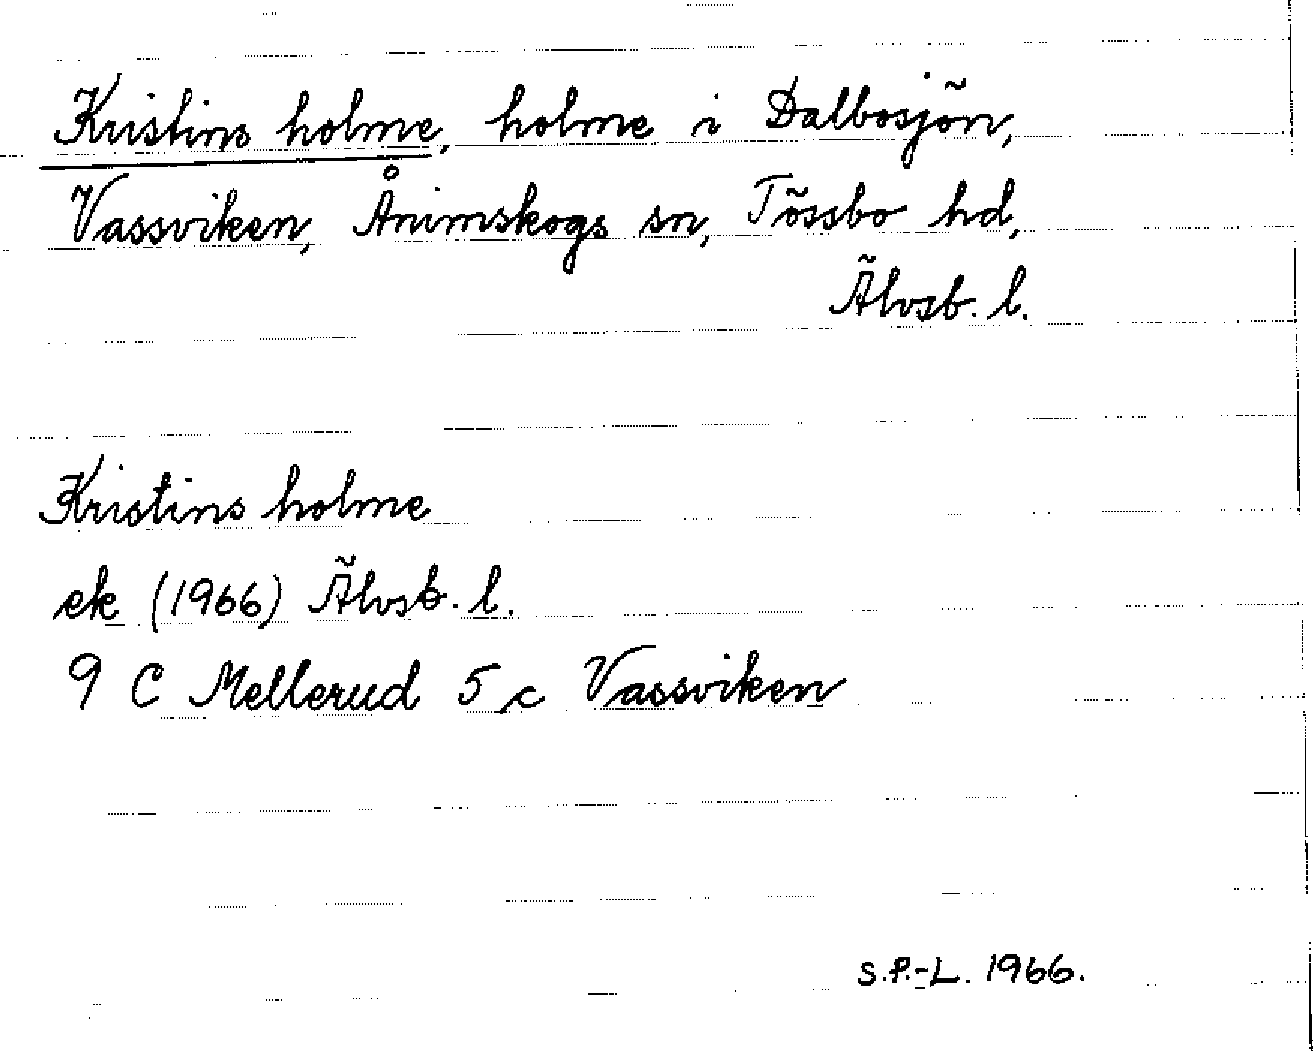 Kristins holme, holme i Dalbosjön,
Vassviken, Ånimskogs sn, Tössbo hd,
Älvsb. l.
Kristins holme
ek (1966) Älvsb. l.
9 C Mellerud 5 c Vassviken
S.P.-L. 1966.